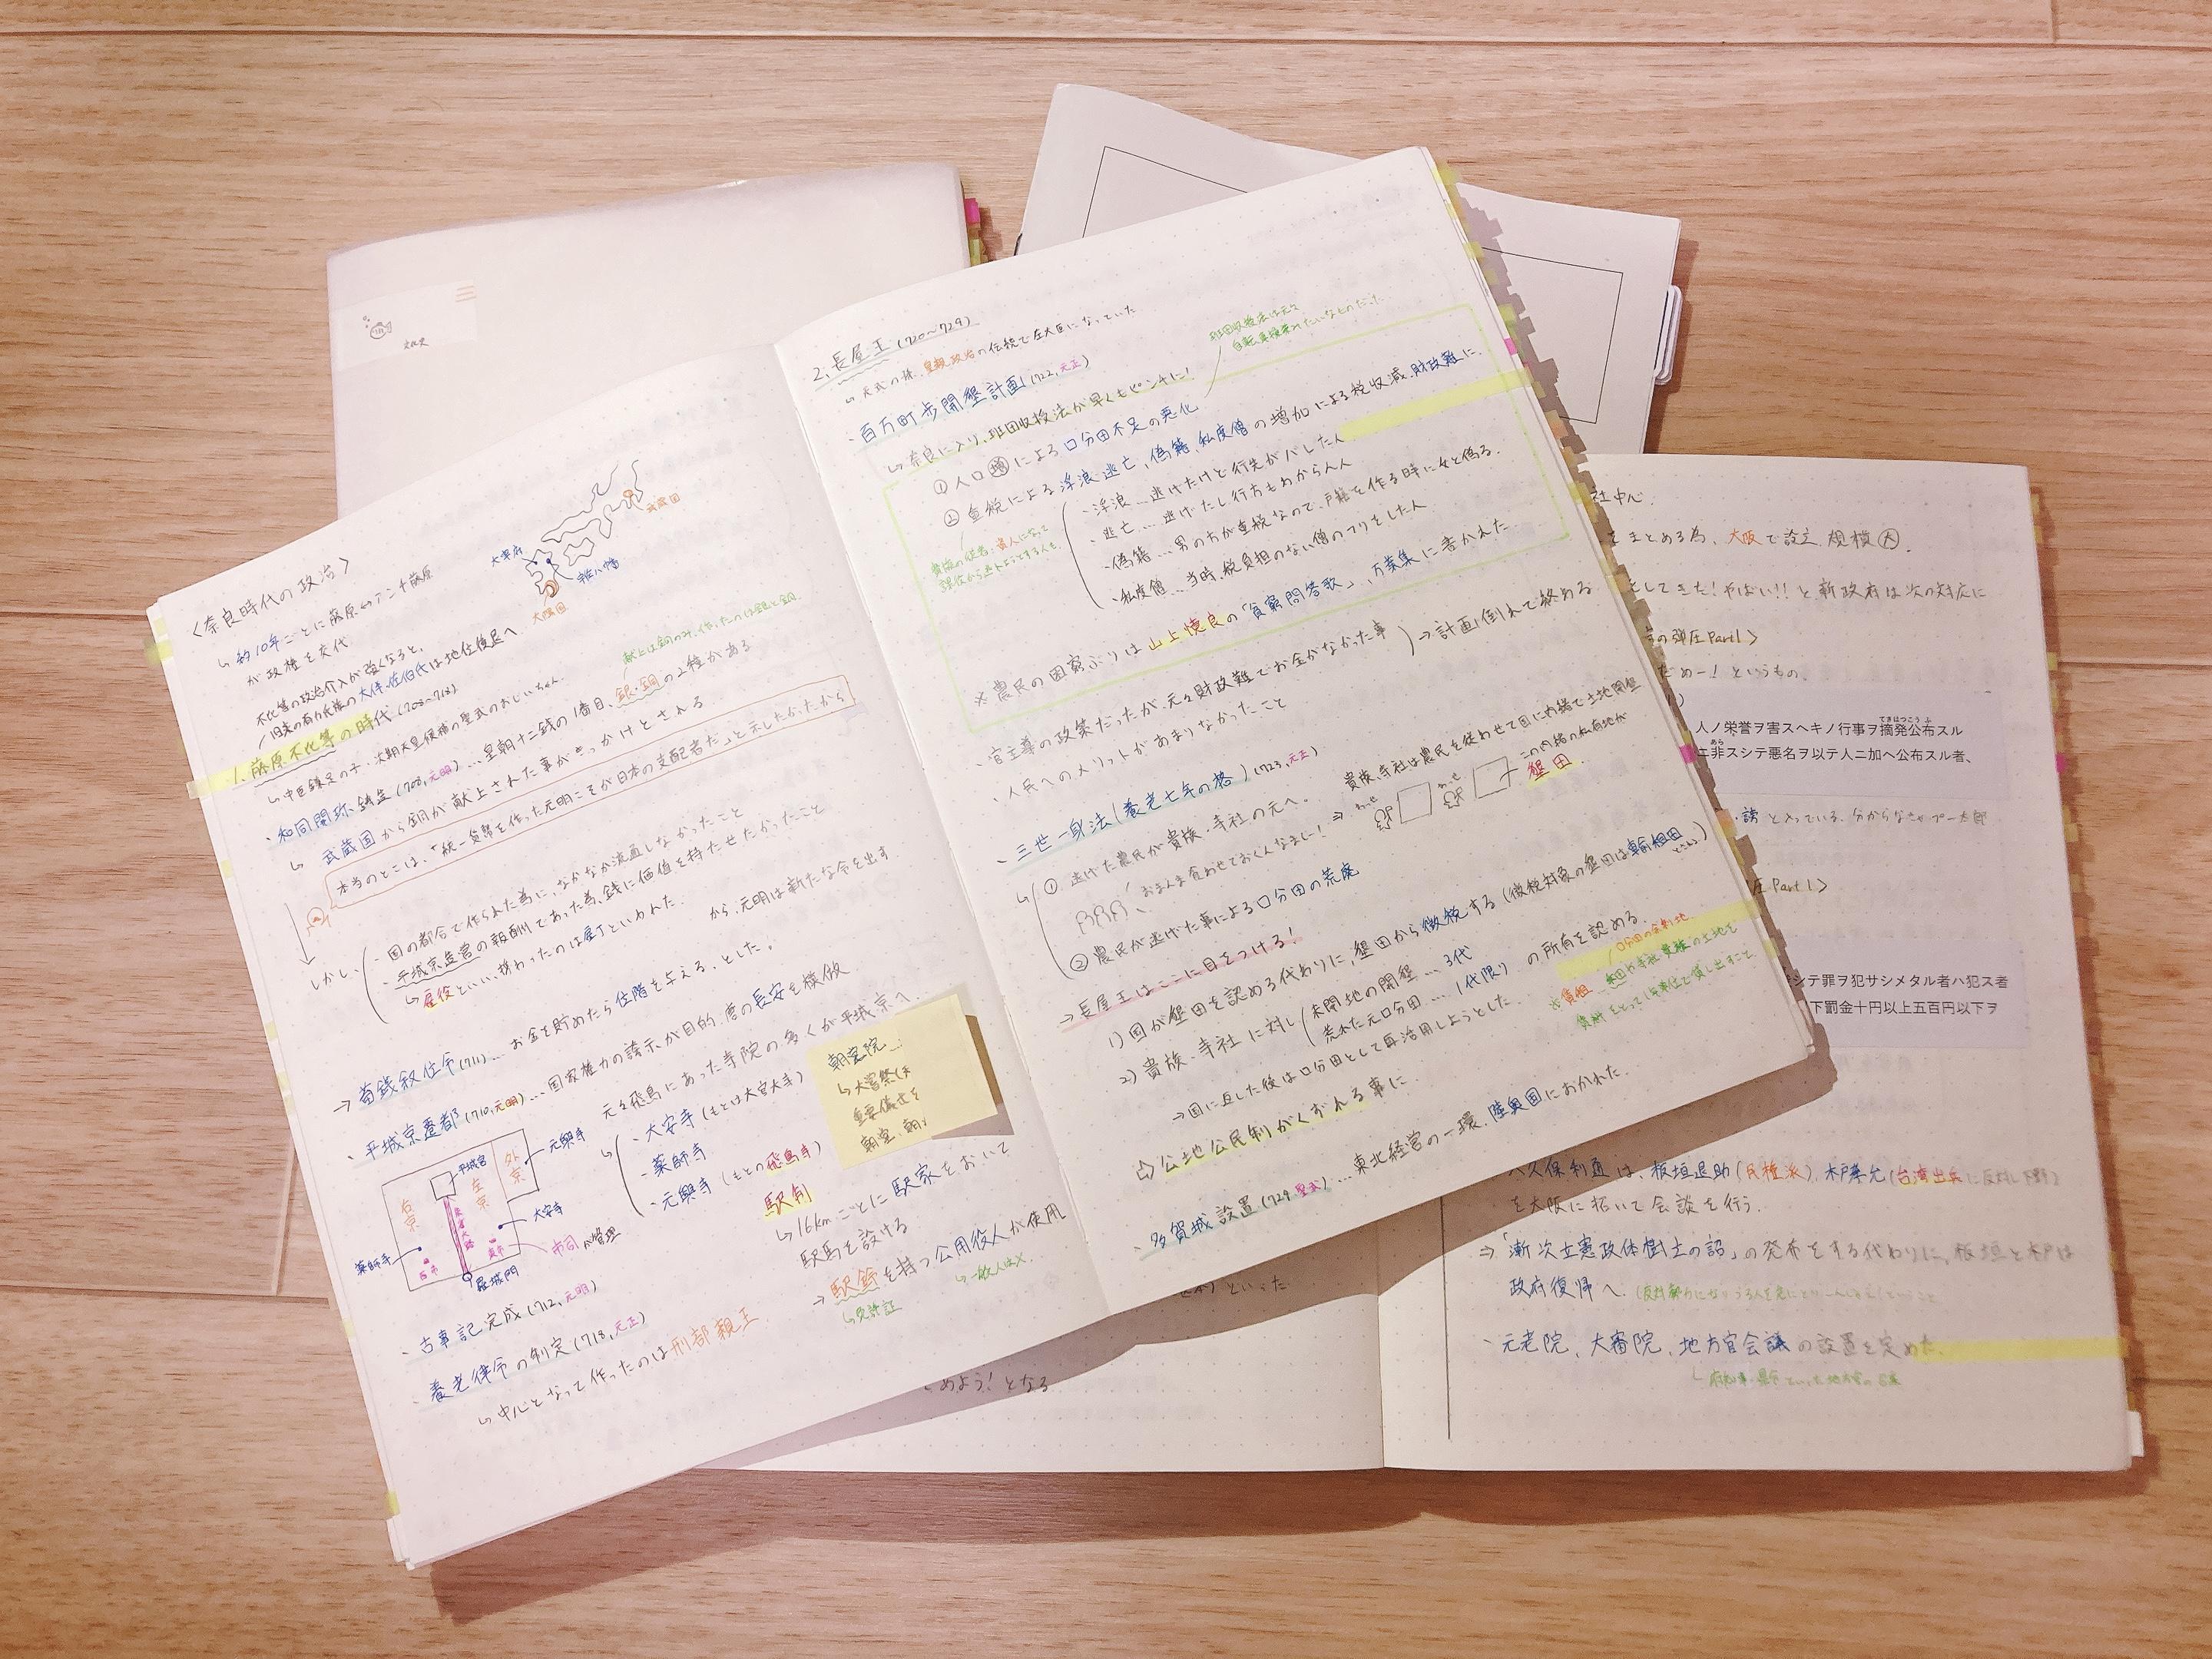 文化史
〈奈良時代の政治〉
↳ 約10年ごとに藤原⇔アンチ藤原
が政権を交代
不比等の政治介入が強くなると、
旧来の有力氏族の大伴、佐伯氏は地位後退へ
大宰府
武蔵国
大隅国
1. 藤原不比等の時代 (708〜720)
↳ 中臣鎌足の子・次期天皇候補の聖武のおじいちゃん。
献上は銅のみ、作ったのは銀と銅
・和同開珎鋳造 (708,元明) … 皇朝十二銭の1番目、銀・銅の2種がある
↳ 武蔵国から銅が献上された事がきっかけとされる
本当のとこは、「統一貨幣を作った元明こそが日本の支配者だ」と示したかったから
しかし
・国の都合で作られた為に、なかなか流通しなかったこと
・平城京造営の報酬であった為、銭に価値を持たせたかったこと
↳ 雇役といい、携わったのは雇丁といわれた。
から、元明は新たな令を出す。
→ 蓄銭叙位令 (711) … お金を貯めたら位階を与える、とした。
・平城京遷都 (710,元明) … 国家権力の誇示が目的、唐の長安を模倣
元々飛鳥にあった寺院の多くが平城京へ
・大安寺 (もとは大官大寺)
・薬師寺
・元興寺 (もとの飛鳥寺)
平城宮
右京
左京
外京
元興寺
朱雀大路
大安寺
薬師寺
西市
東市
市司が管理
羅城門
朝堂院…
↳ 大嘗祭は
重要儀式を
駅制
↳ 16kmごとに駅家をおいて
駅馬を設ける
→ 駅鈴を持つ公用役人が使用
↳ 免許証
↳ 一般人は×
・古事記完成 (712,元明)
・養老律令の制定 (718,元正)
↳ 中心となって作ったのは刑部親王
2. 長屋王 (720〜729)
↳ 天武の孫、皇親政治の伝統で左大臣になっていた
・百万町歩開墾計画 (722,元正)
↳ 奈良に入り、班田収授法が早くもピンチに!
① 人口増による口分田不足の悪化
② 重税による浮浪、逃亡、偽籍、私度僧の増加による税収減、財政難に。
・浮浪 … 逃げたけど行先がバレした人
・逃亡 … 逃げたし行方もわからん人
・偽籍 … 男の方が重税なので、戸籍を作る時に女と偽る。
・私度僧 … 当時、税負担のない僧のフリをした人
※ 農民の困窮ぶりは山上憶良の「貧窮問答歌」、万葉集に書かれた
・官主導の政策だったが、元々財政難でお金がなかった事
・人民へのメリットがあまりなかったこと
→ 計画倒れで終わる
・三世一身法 (養老七年の格) (723,元正)
↳ ① 逃げた農民が貴族・寺社の元へ。
おまんま食わせておくんなまし!
⇒ 貴族、寺社は農民を従わせて国に内緒で土地開墾
この内緒の私有地が
墾田.
② 農民が逃げた事による口分田の荒廃
→ 長屋王はここに目をつける!
1) 国が墾田を認める代わりに、墾田から徴税する (徴税対象の墾田は輸租田
2) 貴族、寺社に対し
未開地の開墾 … 3代
荒れた元口分田 … 1代限り
の所有を認める。
→ 国に返した後は口分田として再活用しようとした。
⇨ 公地公民制がくずれる事に.
・多賀城設置 (729,聖武) … 東北経営の一環、陸奥国におかれた。
社中心.
をまとめる為、大阪で設立. 規模大.
としてきた! やばい!! と新政府は次の対応に
の弾圧Part1〉
だめー! というもの.
人ノ栄誉ヲ害スヘキノ行事ヲ摘発公布スル
非スシテ悪名ヲ以テ人ニ加ヘ公布スル者、
圧Part1〉
シテ罪ヲ犯サシメタル者ハ犯ス者
下罰金十円以上五百円以下ヲ
久保利通は、板垣退助 (民権派)、木戸孝允 (台湾出兵に反対し下野)
を大阪に招いて会談を行う.
⇒「漸次立憲政体樹立の詔」の発布をする代わりに、板垣と木戸は
政府復帰へ.
・元老院、大審院、地方官会議の設置を定めた.
といった.
めよう! となる